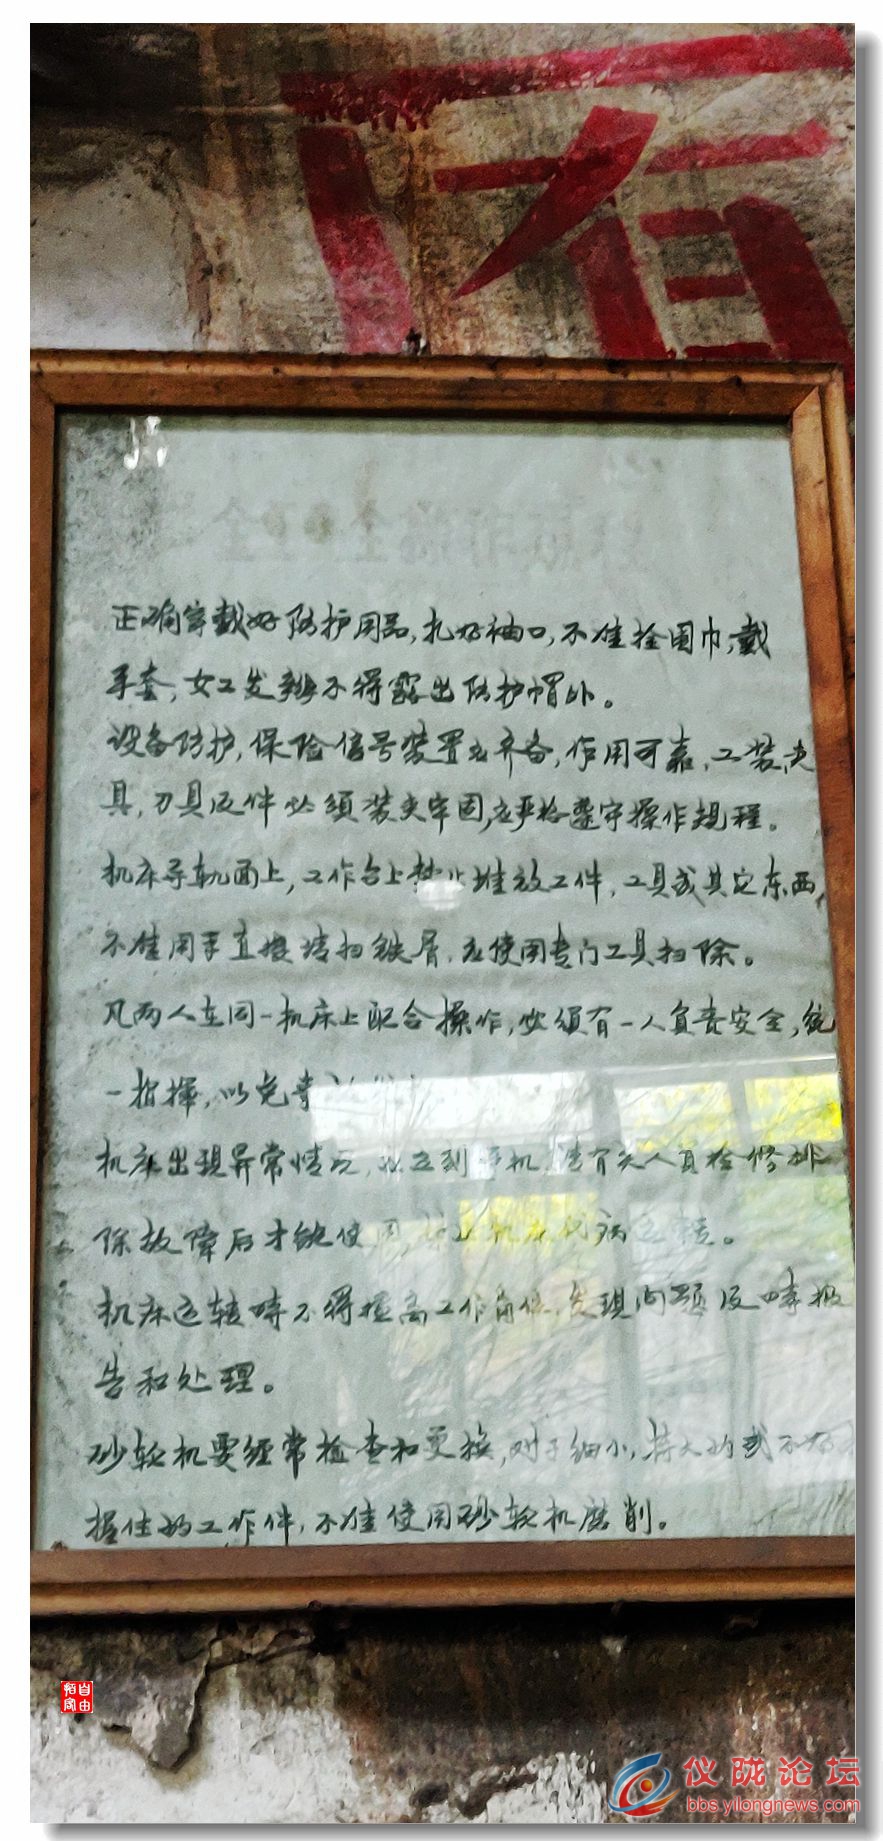 有
正确穿戴好防护用品,扎好袖口,不准拴围巾,戴
手套,女工发辫不得露出防护帽外。
设备防护,保险信号装置应齐备,作用可靠,工装夹
具,刀具及件必须装夹牢固,应严格遵守操作规程。
机床导轨面上,工作台上禁止堆放工件,工具或其它东西,
不准用手直接清扫铁屑,应使用专门工具扫除。
凡两人在同一机床上配合操作,必须有一人负责安全,统
一指挥,以免
机床出现异常情况,应立刻停机,请有关人员检修排
除故障后才能使用,禁止机床代病运转。
机床运转时不得擅离工作岗位,发现问题及时报
告和处理。
砂轮机要经常检查和更换,对于细小,特大的或不好
握住的工作件,不准使用砂轮机磨削。
自由
仪陇论坛
bbs.yilongnews.com